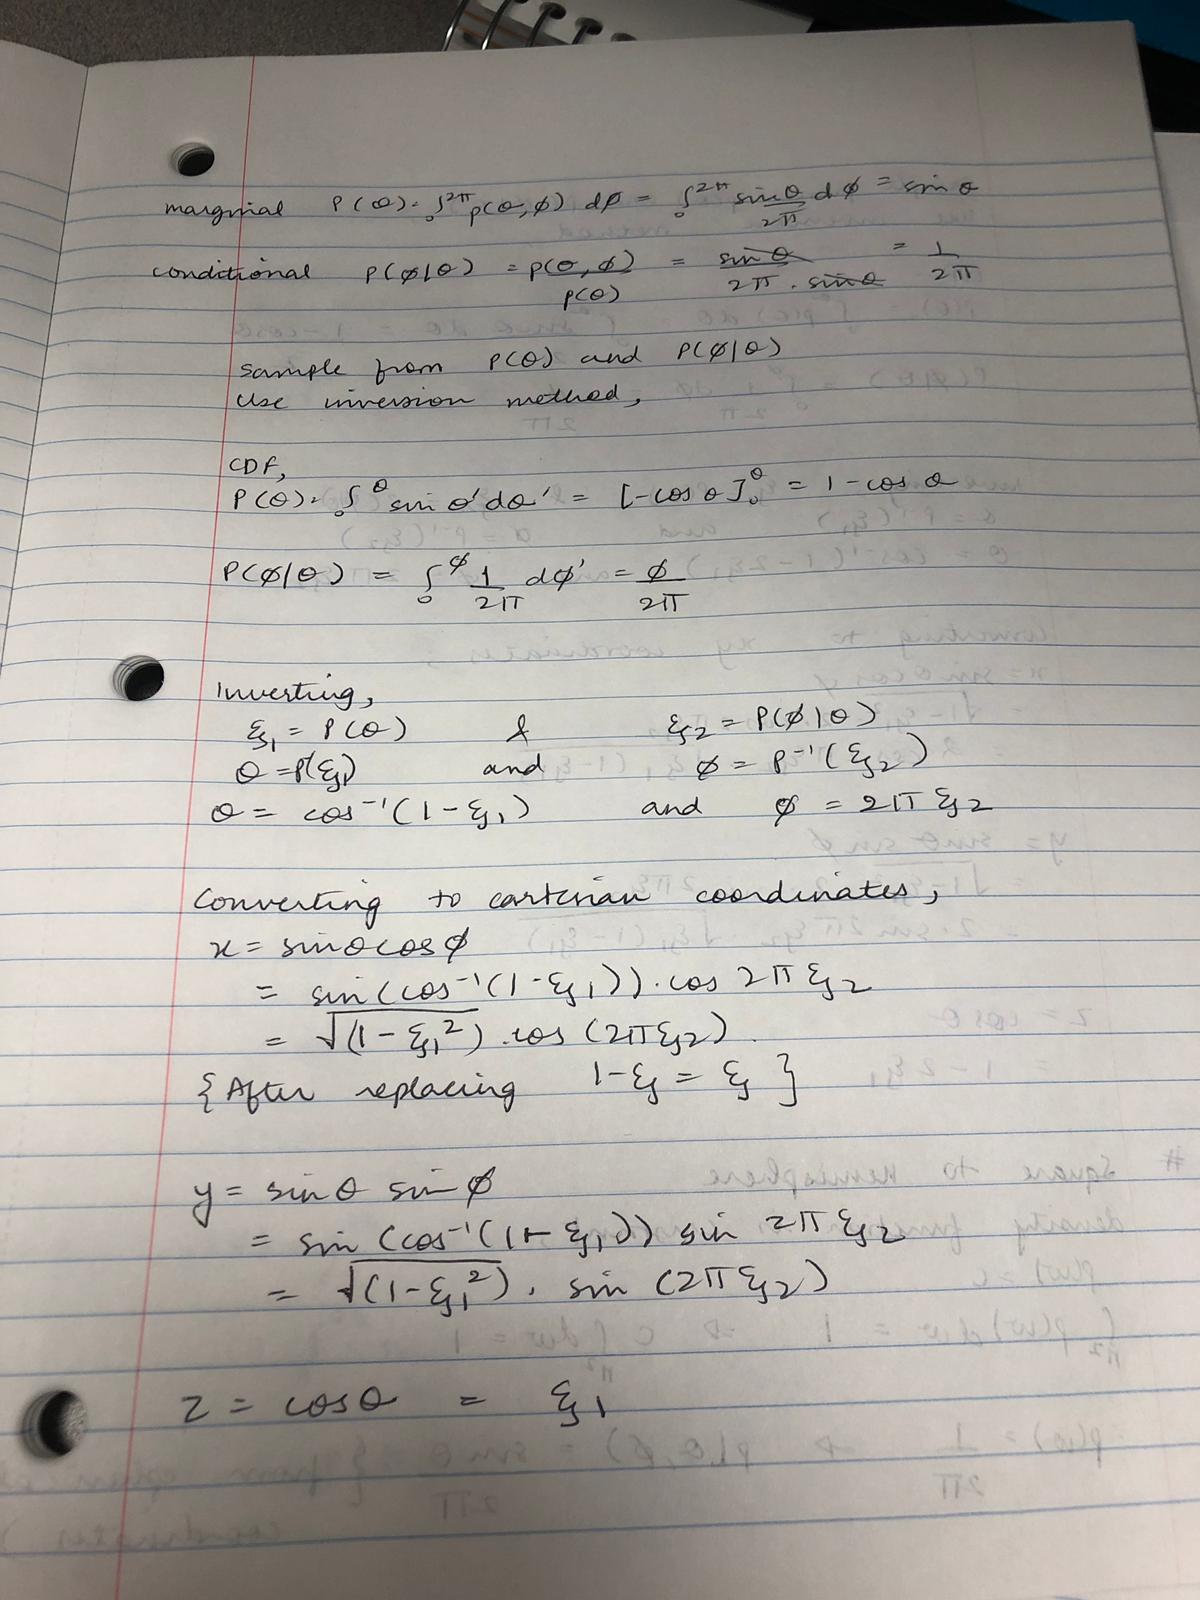 marginal P(θ) = ∫₀^2π p(θ,ϕ) dϕ = ∫₀^2π sinθ/2π dϕ = sin θ
conditional P(ϕ|θ) = p(θ,ϕ)/p(θ) = sin θ/2π . sinθ = 1/2π
sample from P(θ) and P(ϕ|θ)
Use inversion method,
CDF,
P(θ) = ∫₀^θ sin θ'dθ' = [-cos θ]₀^θ = 1-cos θ
P(ϕ|θ) = ∫₀^ϕ 1/2π dϕ' = ϕ/2π
Inverting,
ξ₁ = P(θ) & ξ₂ = P(ϕ|θ)
θ = P(ξ₁) and ϕ = P⁻¹(ξ₂)
θ = cos⁻¹(1-ξ₁) and ϕ = 2π ξ₂
Converting to cartesian coordinates,
x = sinθcosϕ
= sin(cos⁻¹(1-ξ₁)).cos 2π ξ₂
= √(1-ξ₁²) .cos (2πξ₂)
{After replacing 1-ξ = ξ }
y = sinθ sinϕ
= sin (cos⁻¹(1-ξ₁)) sin 2π ξ₂
= √(1-ξ₁²) . sin (2πξ₂)
z = cosθ = ξ₁